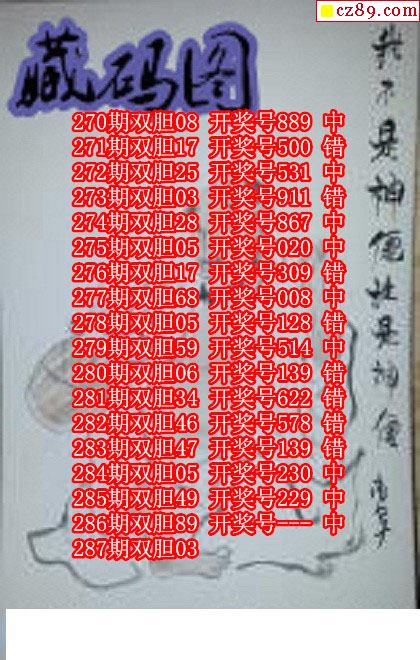 cz89.com
藏码图
270期双胆08 开奖号889 中
271期双胆17 开奖号500 错
272期双胆25 开奖号531 中
273期双胆08 开奖号911 错
274期双胆28 开奖号867 中
275期双胆05 开奖号020 中
276期双胆17 开奖号309 错
277期双胆68 开奖号008 中
278期双胆05 开奖号128 错
279期双胆59 开奖号514 中
280期双胆06 开奖号139 错
281期双胆34 开奖号622 错
282期双胆46 开奖号578 错
283期双胆47 开奖号139 错
284期双胆05 开奖号230 中
285期双胆49 开奖号229 中
286期双胆89 开奖号--- 中
287期双胆03
我不是神仙
是神仙